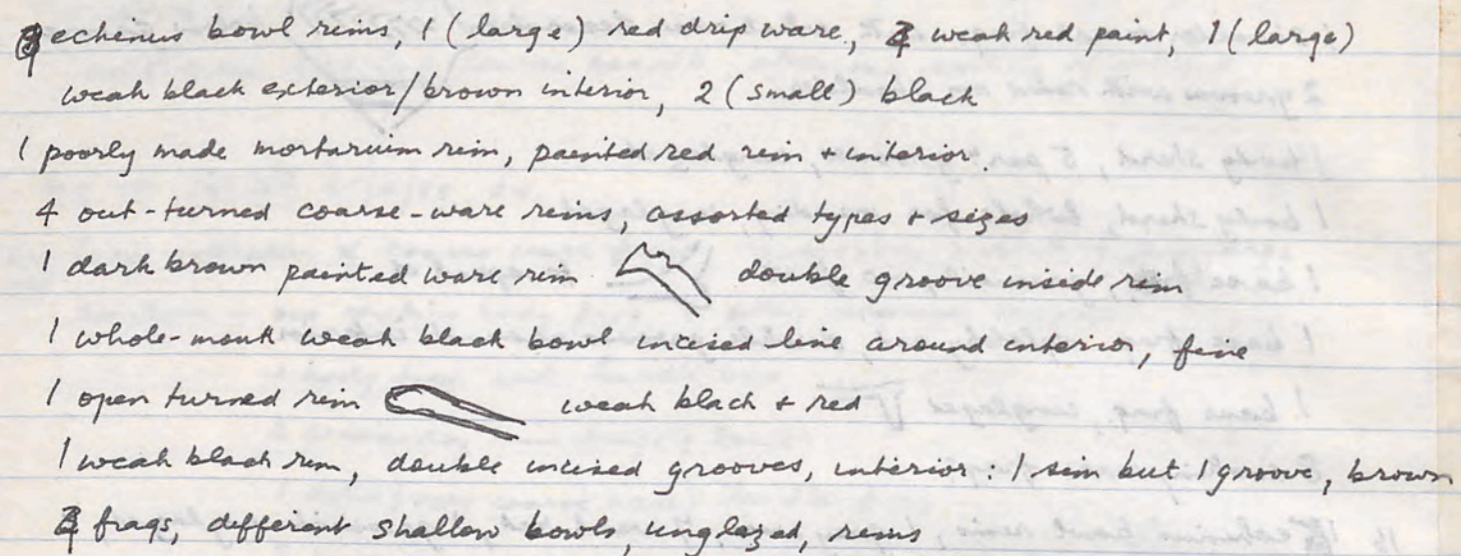 echinus bowl rims, 1 (large) red drip ware, weak red paint, 1 (large)
weak black exterior/brown interior, 2 (small) black
1 poorly made mortarium rim, painted red rim + interior.
4 out-turned coarse-ware rims, assorted types + sizes
1 dark brown painted ware rim double groove inside rim
1 whole-mouth weak black bowl incised line around interior, fine
1 open turned rim weak black + red
1 weak black rim, double incised grooves, interior : 1 sim but 1 groove, brown
frags, different shallow bowls, unglazed, rims